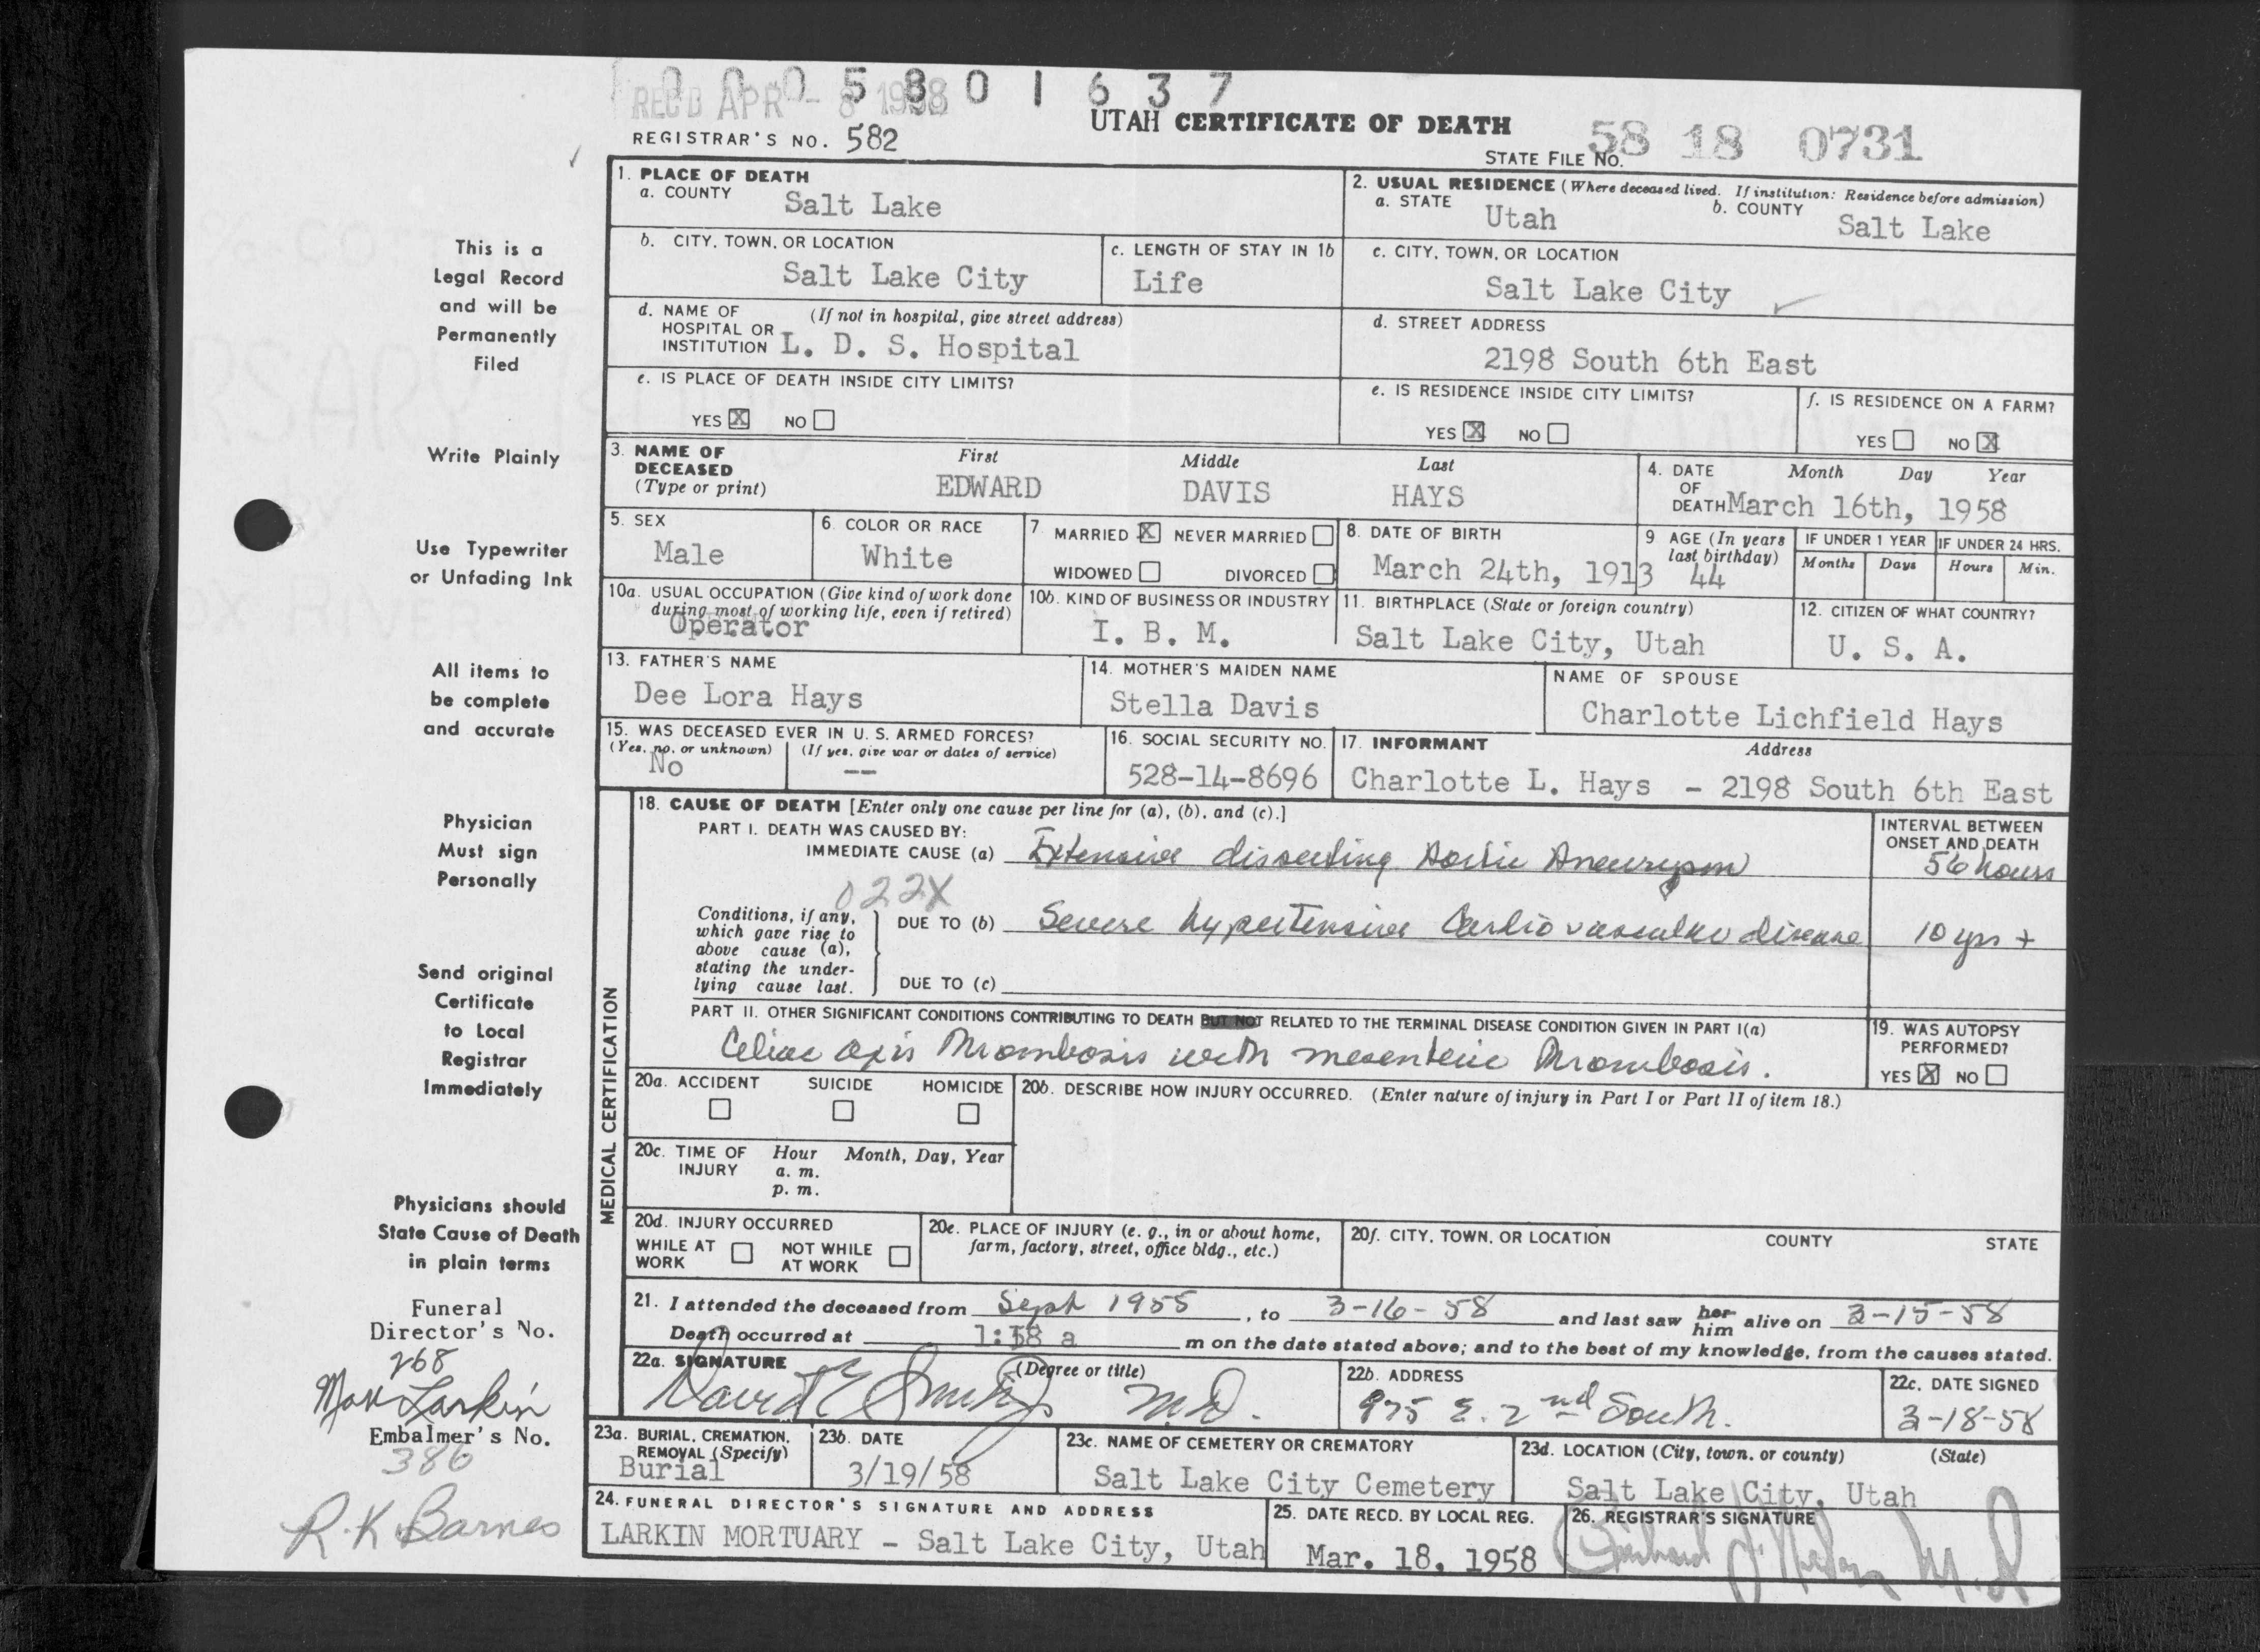 0 0 0 5 8 0 1 6 3 7
REC'D APR - 8 1958
UTAH CERTIFICATE OF DEATH
REGISTRAR'S NO. 582
STATE FILE NO. 58 18 0731
1. PLACE OF DEATH
a. COUNTY Salt Lake
2. USUAL RESIDENCE (Where deceased lived. If institution: Residence before admission)
a. STATE Utah b. COUNTY Salt Lake
b. CITY, TOWN, OR LOCATION Salt Lake City
c. LENGTH OF STAY IN 1b Life
c. CITY, TOWN, OR LOCATION Salt Lake City
d. NAME OF HOSPITAL OR INSTITUTION (If not in hospital, give street address) L. D. S. Hospital
d. STREET ADDRESS 2198 South 6th East
e. IS PLACE OF DEATH INSIDE CITY LIMITS?
YES X NO
e. IS RESIDENCE INSIDE CITY LIMITS?
YES X NO
f. IS RESIDENCE ON A FARM?
YES NO X
3. NAME OF DECEASED (Type or print) First Middle Last
EDWARD DAVIS HAYS
4. DATE OF DEATH Month Day Year
March 16th, 1958
5. SEX Male
6. COLOR OR RACE White
7. MARRIED X NEVER MARRIED
WIDOWED DIVORCED
8. DATE OF BIRTH March 24th, 1913
9 AGE (In years last birthday) 44
IF UNDER 1 YEAR Months Days
IF UNDER 24 HRS. Hours Min.
10a. USUAL OCCUPATION (Give kind of work done during most of working life, even if retired) Operator
10b. KIND OF BUSINESS OR INDUSTRY I. B. M.
11. BIRTHPLACE (State or foreign country) Salt Lake City, Utah
12. CITIZEN OF WHAT COUNTRY? U. S. A.
13. FATHER'S NAME Dee Lora Hays
14. MOTHER'S MAIDEN NAME Stella Davis
NAME OF SPOUSE Charlotte Lichfield Hays
15. WAS DECEASED EVER IN U. S. ARMED FORCES?
(Yes, no, or unknown) No (If yes, give war or dates of service) --
16. SOCIAL SECURITY NO. 528-14-8696
17. INFORMANT Address
Charlotte L. Hays - 2198 South 6th East
18. CAUSE OF DEATH [Enter only one cause per line for (a), (b), and (c).]
INTERVAL BETWEEN ONSET AND DEATH
PART I. DEATH WAS CAUSED BY:
IMMEDIATE CAUSE (a) Extensive dissecting Aortic Aneurysm 56 hours
022X
Conditions, if any, which gave rise to above cause (a), stating the underlying cause last.
DUE TO (b) Severe hypertensive Cardiovascular disease 10 yrs +
DUE TO (c)
PART II. OTHER SIGNIFICANT CONDITIONS CONTRIBUTING TO DEATH BUT NOT RELATED TO THE TERMINAL DISEASE CONDITION GIVEN IN PART I(a)
Celiac axis thrombosis with mesenteric thrombosis.
19. WAS AUTOPSY PERFORMED?
YES X NO
20a. ACCIDENT SUICIDE HOMICIDE
20b. DESCRIBE HOW INJURY OCCURRED. (Enter nature of injury in Part I or Part II of item 18.)
20c. TIME OF INJURY Hour a. m. p. m. Month, Day, Year
20d. INJURY OCCURRED
WHILE AT WORK NOT WHILE AT WORK
20e. PLACE OF INJURY (e. g., in or about home, farm, factory, street, office bldg., etc.)
20f. CITY, TOWN, OR LOCATION COUNTY STATE
MEDICAL CERTIFICATION
21. I attended the deceased from Sept 1955, to 3-16-58 and last saw her him alive on 3-15-58
Death occurred at 1:58 a m on the date stated above; and to the best of my knowledge, from the causes stated.
22a. SIGNATURE (Degree or title)
David E Smith M.D.
22b. ADDRESS 975 E. 2nd South.
22c. DATE SIGNED 3-18-58
23a. BURIAL, CREMATION, REMOVAL (Specify) Burial
23b. DATE 3/19/58
23c. NAME OF CEMETERY OR CREMATORY Salt Lake City Cemetery
23d. LOCATION (City, town, or county) (State) Salt Lake City, Utah
24. FUNERAL DIRECTOR'S SIGNATURE AND ADDRESS
LARKIN MORTUARY - Salt Lake City, Utah
25. DATE RECD. BY LOCAL REG. Mar. 18, 1958
26. REGISTRAR'S SIGNATURE
M.D.
This is a
Legal Record
and will be
Permanently
Filed
Write Plainly
Use Typewriter
or Unfading Ink
All items to
be complete
and accurate
Physician
Must sign
Personally
Send original
Certificate
to Local
Registrar
Immediately
Physicians should
State Cause of Death
in plain terms
Funeral
Director's No.
268
Max Larkin
Embalmer's No.
386
R. K Barnes